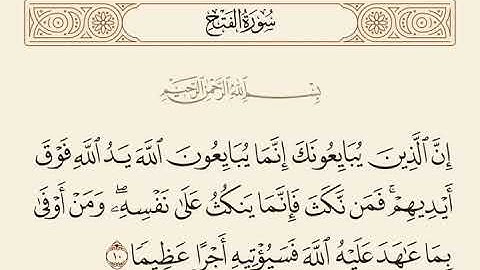 سُورَةُ الفَتۡحِ
بِسۡمِ ٱللَّهِ ٱلرَّحۡمَٰنِ ٱلرَّحِيمِ
إِنَّ ٱلَّذِينَ يُبَايِعُونَكَ إِنَّمَا يُبَايِعُونَ ٱللَّهَ يَدُ ٱللَّهِ فَوۡقَ
أَيۡدِيهِمۡۚ فَمَن نَّكَثَ فَإِنَّمَا يَنكُثُ عَلَىٰ نَفۡسِهِۦۖ وَمَنۡ أَوۡفَىٰ
بِمَا عَٰهَدَ عَلَيۡهُ ٱللَّهَ فَسَيُؤۡتِيهِ أَجۡرًا عَظِيمٗا ١٠